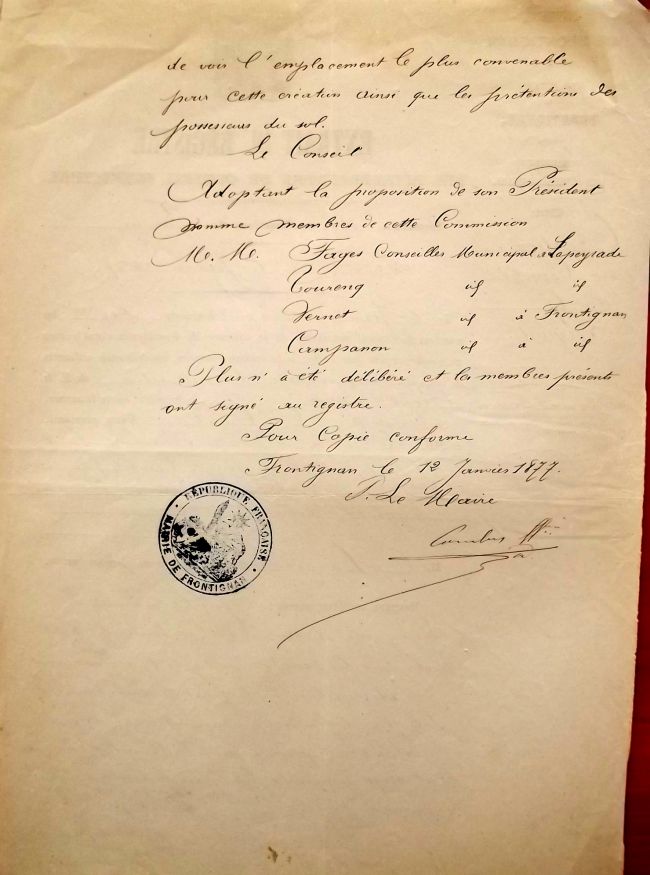 de voir l'emplacement le plus convenable
pour cette création ainsi que les prétentions des
possesseurs du sol.
Le Conseil
Adoptant la proposition de son Président
nomme membres de cette Commission
M. M. Fages Conseiller Municipal à Lapeyrade
Toureng id id
Vernet id à Frontignan
Campanon id à id
Plus n'a été délibéré et les membres présents
ont signé au registre.
Pour Copie conforme
Frontignan le 12 Janvier 1877.
P. Le Maire
RÉPUBLIQUE FRANÇAISE
MAIRIE DE FRONTIGNAN